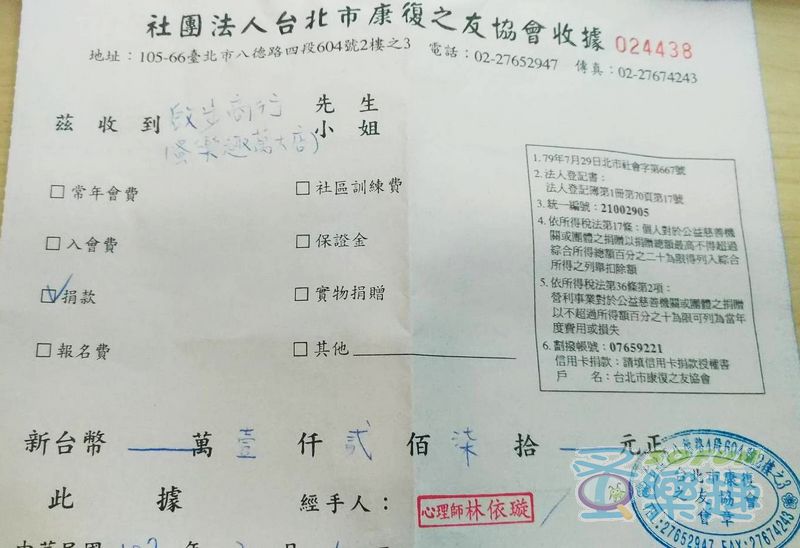 社團法人台北市康復之友協會收據 024438
地址：105-66臺北市八德路四段604號2樓之3 電話：02-27652947 傳真：02-27674243
茲收到 啟步商行 先生
(蚤樂趣萬大店) 小姐
□常年會費 □社區訓練費
□入會費 □保證金
☑捐款 □實物捐贈
□報名費 □其他
1. 79年7月29日北市社會字第667號
2. 法人登記書：
法人登記簿第1冊第70頁第17號
3. 統一編號：21002905
4. 依所得稅法第17條：個人對於公益慈善機
關或團體之捐贈以捐贈總額最高不得超過
綜合所得總額百分之二十為限得列入綜合
所得之列舉扣除額
5. 依所得稅法第36條第2項：
營利事業對於公益慈善機關或團體之捐贈
以不超過所得額百分之十為限可列為當年
度費用或損失
6. 劃撥帳號：07659221
信用卡捐款：請填信用卡捐款授權書
戶 名：台北市康復之友協會
新台幣 — 萬 壹 仟 貳 佰 柒 拾 — 元正
此據 經手人：
心理師林依璇
路4段604號2樓之3
台北市康復
之友協會
會章
TEL:27652947 FAX:27674243
蚤樂趣
中華民國 年 月